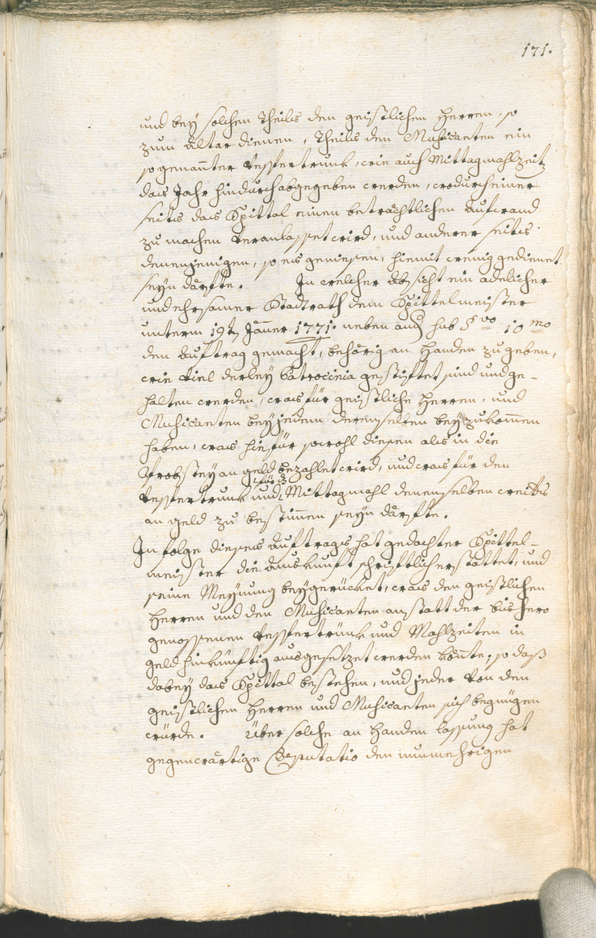 171.
und bey solchen Theils den geistlichen Herren, so
zum Altar dienen, Theils den Musicanten ein
sogenannter Vespertrunk, wie auch Mittagmahlzeit
das Jahr hindurch abgegeben werden, wodurch einer
seits das Spittal einen beträchtlichen Aufwand
zu machen veranlasset wird, und anderer seits
denenjenigen, so es geniesen, hiemit wenig gedienet
seyn därfte. In welcher Absicht ein adelicher
und ehrsamer Stadtrath dem Spittelmeister
unterm 19t Jäner 1771. neben and sub § vo 10mo
den Auftrag gemacht, behörig an Handen zu geben,
wie viel derley Patrocinia gestiftet sind und ge-
halten werden, was für geistliche Herren, und
Musicanten bey jedem derenselben beyzukommen
haben, was hiefür sowohl diesen als in die
Probstey an geld bezahlet wird, und was für den
Vespertrunk und für das Mittagmahl denenselben
an geld zu bestimmen seyn därfte.
In folge dieses Auftrags hat gedachter Spittel-
meister die Auskunft schriftlich erstattet, und
seine Meynung beygerücket, was den geistlichen
Herren und den Musicanten anstatt der bishero
genossenen Vespertrünk und Mahlzeiten in
geld hinkünftig ausgesetzet werden könte, so daß
dabey das Spittal bestehen, und jeder von den
geistlichen Herren und Musicanten sich begnügen
würde. Über solche an Handen lassung hat
gegenwärtige Deputatio den nunmehrigen